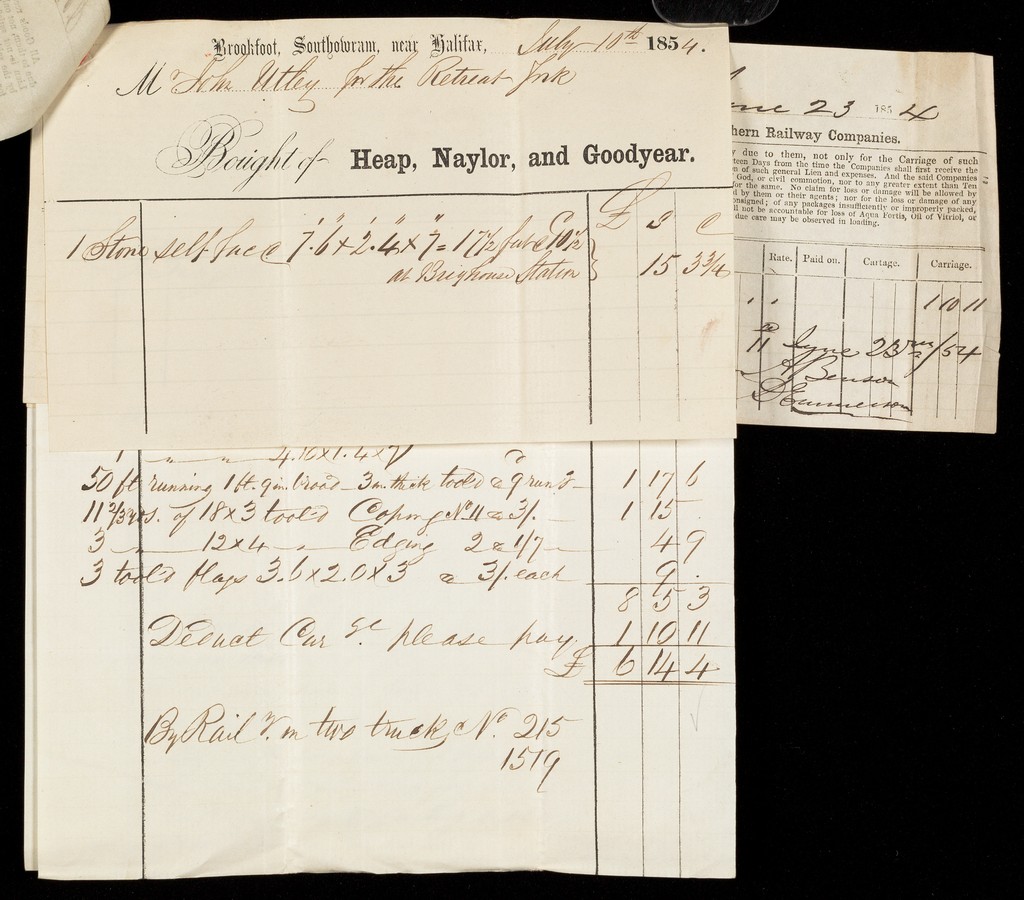 Brookfoot, Southowram, near Halifax, July 10th 1854.
Mr John Utley for the Retreat York
Bought of Heap, Naylor, and Goodyear.
£ s
1 Stone self face 7.6 x 2.4 x 7 = 17 1/2 @ 10 1/2
at Brighouse Station 15 3 3/4
23 1854
hern Railway Companies.
due to them, not only for the Carriage of such
teen Days from the time the Companies shall first receive the
of such general Lien and expenses. And the said Companies
God, or civil commotion, nor to any greater extent than Ten
for the same. No claim for loss or damage will be allowed by
d by them or their agents; nor for the loss or damage of any
onsigned; of any packages insufficiently or improperly packed,
ll not be accountable for loss of Aqua Fortis, Oil of Vitriol, or
due care may be observed in loading.
Rate. Paid on. Cartage. Carriage.
1 10 11
11 June 23rd /54
Benson
1 " " 4.10 x 1.4 x 7
50 ft running 1 ft. 9 in. broad 3 in. thick toold @ 9 1 17 6
11 2/3 yds. of 18 x 3 toold Coping No. 11 @ 3/. 1 15 .
3 " 12 x 4 " Edging 2 @ 1/7 4 9
3 toold flags 3.6 x 2.0 x 3 @ 3/. each 9 .
8 5 3
Deduct Car ge please pay 1 10 11
£ 6 14 4
By Rail y. in two trucks No. 215
1519